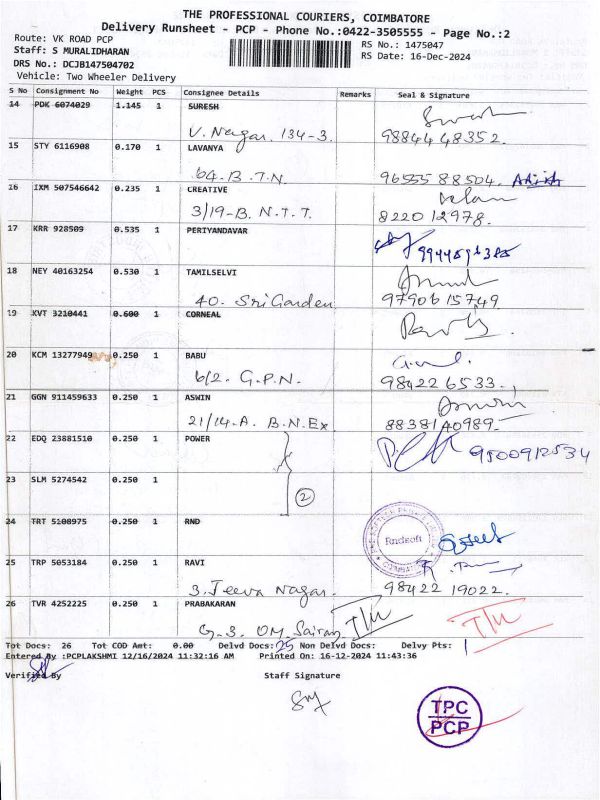 THE PROFESSIONAL COURIERS, COIMBATORE
Delivery Runsheet - PCP - Phone No.:0422-3505555 - Page No.:2
Route: VK ROAD PCP
Staff: S MURALIDHARAN
RS No.: 1475047
DRS No.: DCJB147504702
RS Date: 16-Dec-2024
Vehicle: Two Wheeler Delivery
S No Consignment No Weight PCS Consignee Details Remarks Seal & Signature
14 PDK 6074029 1.145 1 SURESH
V. Nagar. 134-3. 98844 48352.
15 STY 6116908 0.170 1 LAVANYA
64. B. T.N. 96555 88504.
16 IXM 507546642 0.235 1 CREATIVE
3/19-B. N.T.T. 822012978.
17 KRR 928509 0.535 1 PERIYANDAVAR
18 NEY 40163254 0.530 1 TAMILSELVI
40. Sri Garden 9790615749
19 KVT 3210441 0.600 1 CORNEAL
20 KCM 13277949 0.250 1 BABU
6/2. G.P.N. 984226533.
21 GGN 911459633 0.250 1 ASWIN
21/14-A. B.N.Ex 8838140989.
22 EDQ 23881510 0.250 1 POWER
9500912534
23 SLM 5274542 0.250 1
2
24 TRT 5108975 0.250 1 RND
Rndsoft
25 TRP 5053184 0.250 1 RAVI
3. Jeeva Nagar. 98422 19022.
26 TVR 4252225 0.250 1 PRABAKARAN
G-3. OM. Sairam T/N T/N
Tot Docs: 26 Tot COD Amt: 0.00 Delvd Docs: 25 Non Delvd Docs: Delvy Pts: 1
Entered By :PCPLAKSHMI 12/16/2024 11:32:16 AM Printed On: 16-12-2024 11:43:36
Verified By Staff Signature
TPC
PCP